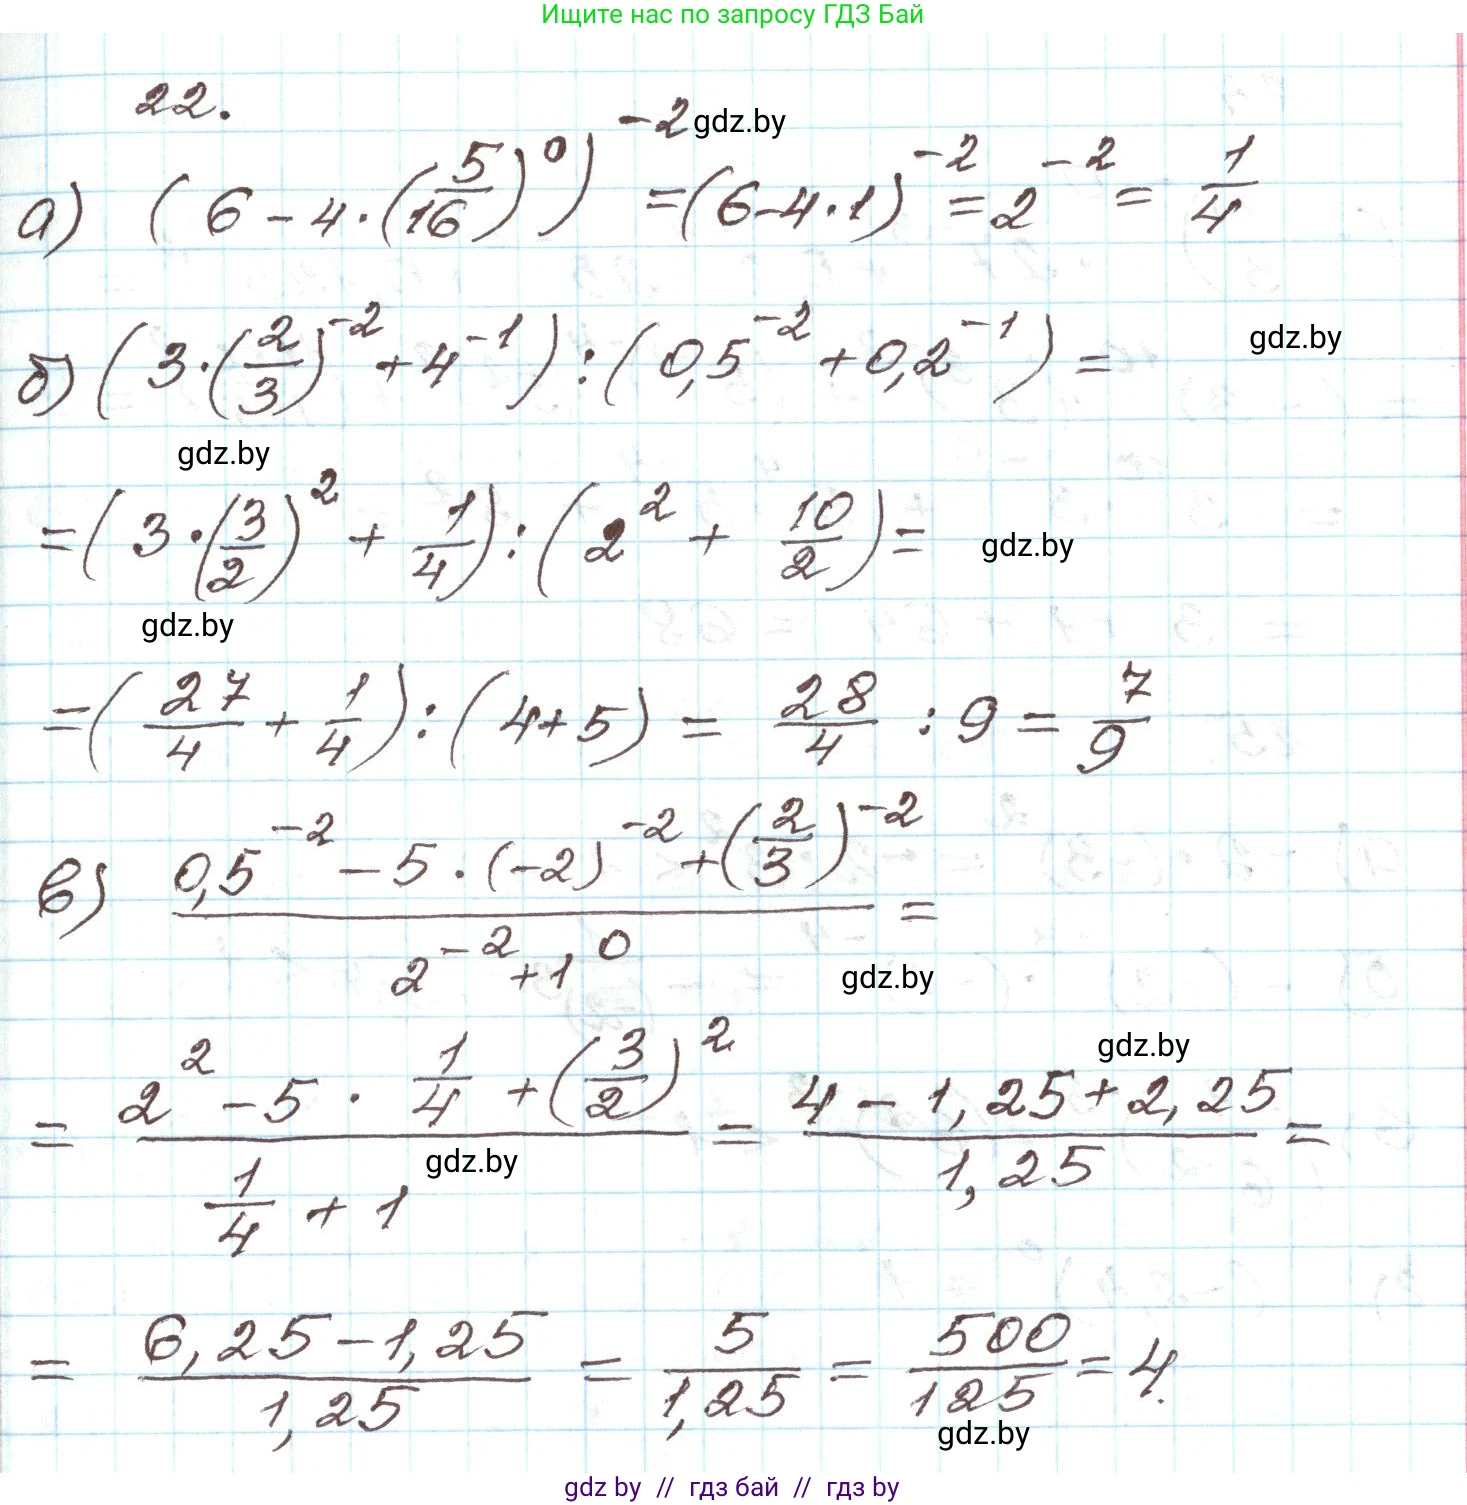 Ищите нас по запросу ГДЗ Бай
22.
а) (6 - 4 · (5/16)^0)^-2 = (6 - 4 · 1)^-2 = 2^-2 = 1/4
gdz.by
б) (3 · (2/3)^-2 + 4^-1) : (0,5^-2 + 0,2^-1) =
gdz.by
gdz.by
= (3 · (3/2)^2 + 1/4) : (2^2 + 10/2) =
gdz.by
gdz.by
= (27/4 + 1/4) : (4 + 5) = 28/4 : 9 = 7/9
в) (0,5^-2 - 5 · (-2)^-2 + (2/3)^-2) / (2^-2 + 1^0) =
gdz.by
= (2^2 - 5 · 1/4 + (3/2)^2) / (1/4 + 1) = (4 - 1,25 + 2,25) / 1,25 =
gdz.by
gdz.by
= (6,25 - 1,25) / 1,25 = 5/1,25 = 500/125 = 4.
gdz.by
gdz by // гдз бай // гдз by